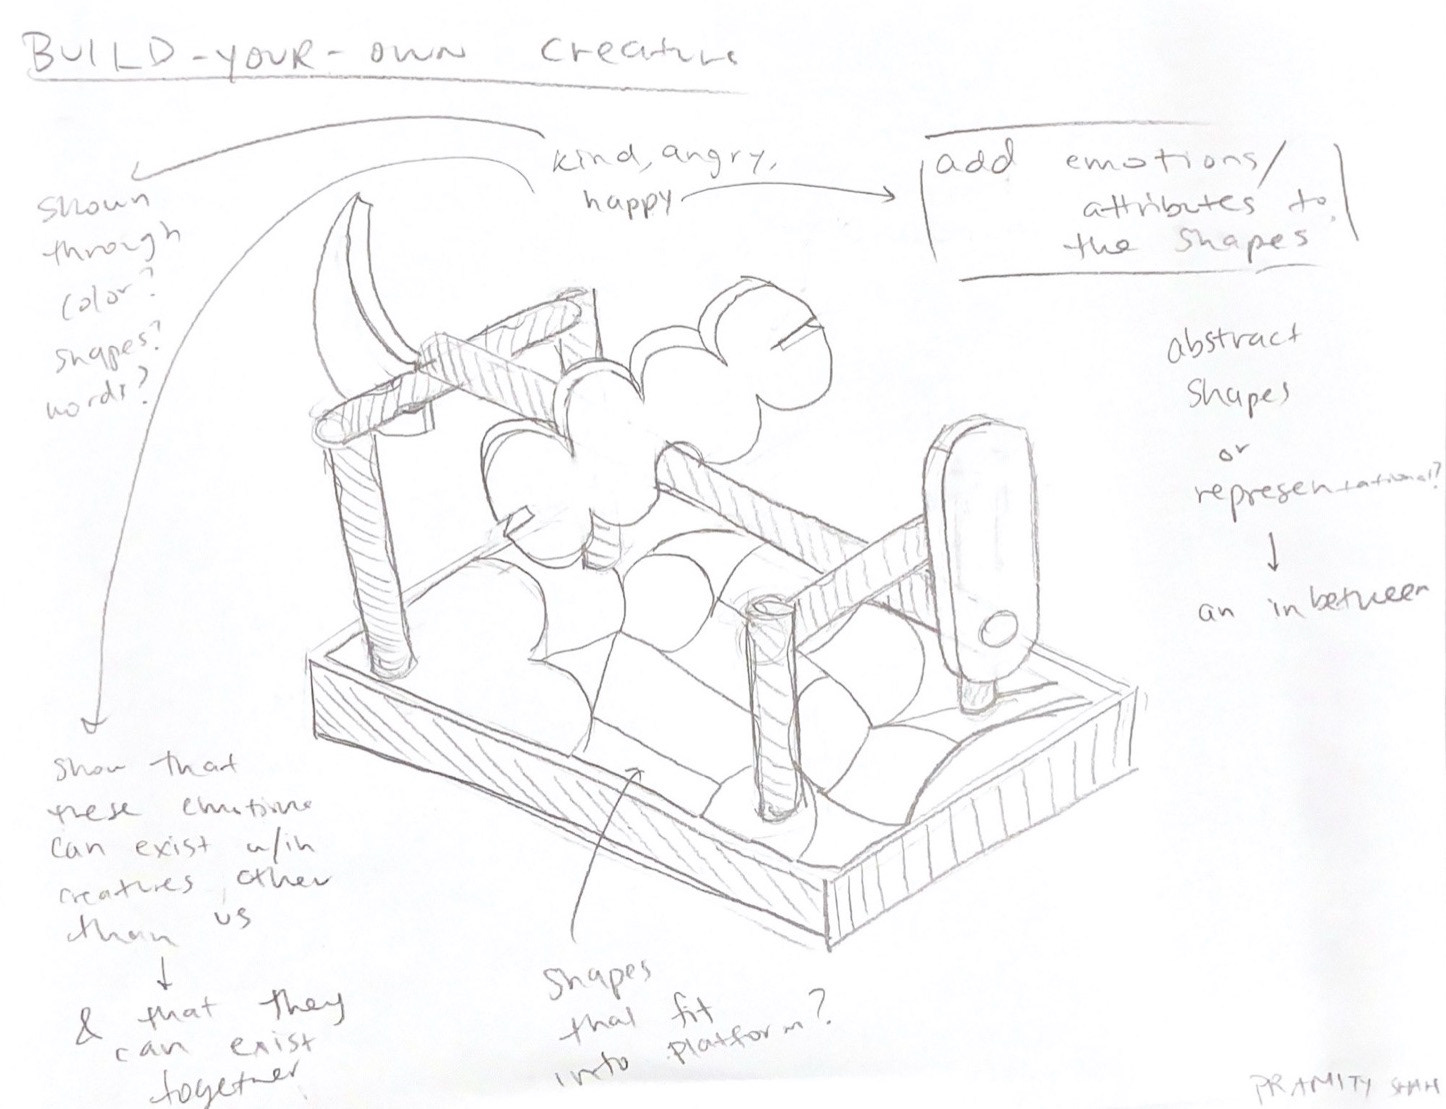 BUILD-YOUR-OWN creature
kind, angry,
happy
add emotions/
attributes to
the shapes
shown
through
color?
shapes?
words?
abstract
shapes
or
representational?
an inbetween
show that
these emotions
can exist w/in
creatures other
than us
& that they
can exist
together
shapes
that fit
into platform?
PRAMITY SHAH